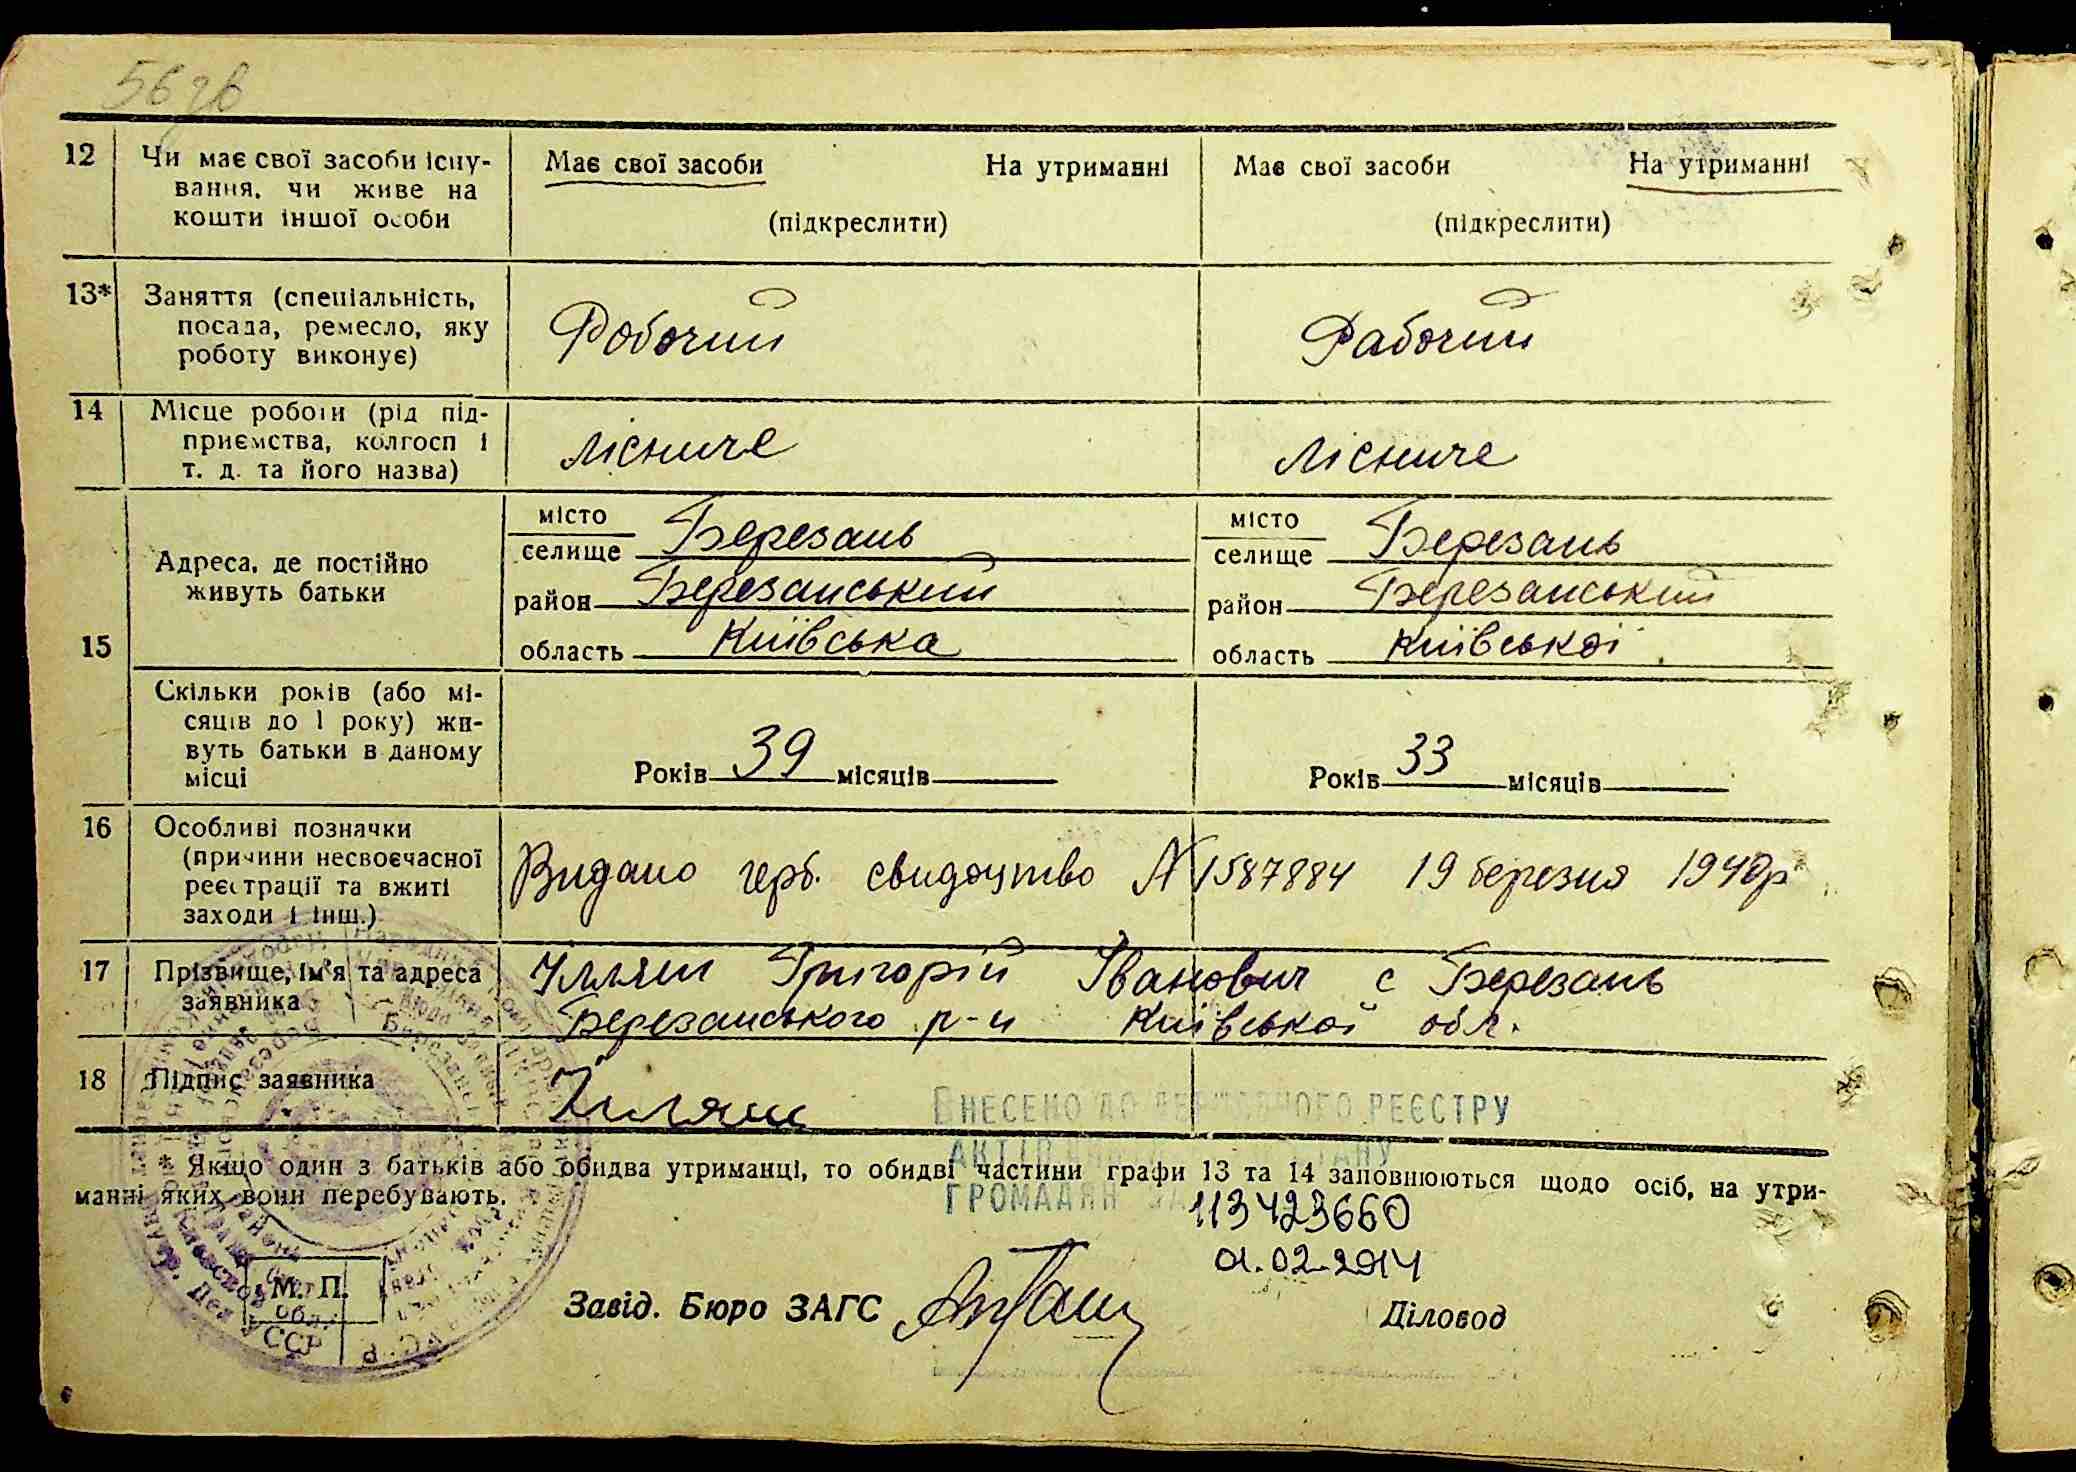 56 зв
12 Чи має свої засоби існу- Має свої засоби На утриманні Має свої засоби На утриманні
вання, чи живе на
кошти іншої особи (підкреслити) (підкреслити)
13* Заняття (спеціальність,
посада, ремесло, яку Робочий Рабочий
роботу виконує)
14 Місце роботи (рід під-
приємства, колгосп і лісниче лісниче
т. д. та його назва)
місто Березань місто Березань
селище селище
15 Адреса, де постійно
живуть батьки район Березанський район Березанський
область Київська область Київської
Скільки років (або мі-
сяців до 1 року) жи-
вуть батьки в даному
місці Років 39 місяців Років 33 місяців
16 Особливі позначки
(причини несвоєчасної
реєстрації та вжиті Видано герб. свидоцтво N 1587884 19 березня 1940р
заходи і інш.)
17 Прізвище, ім'я та адреса Ілляш Григорій Іванович с Березань
заявника Березанського р-н Київської обл.
18 Підпис заявника Ілляш
Внесено до державного реєстру
актів стану
громадян за
* Якщо один з батьків або обидва утриманці, то обидві частини графи 13 та 14 заповнюються щодо осіб, на утри-
манні яких вони перебувають.
113423660
01.02.2014
М. П. Завід. Бюро ЗАГС Діловод
УССР